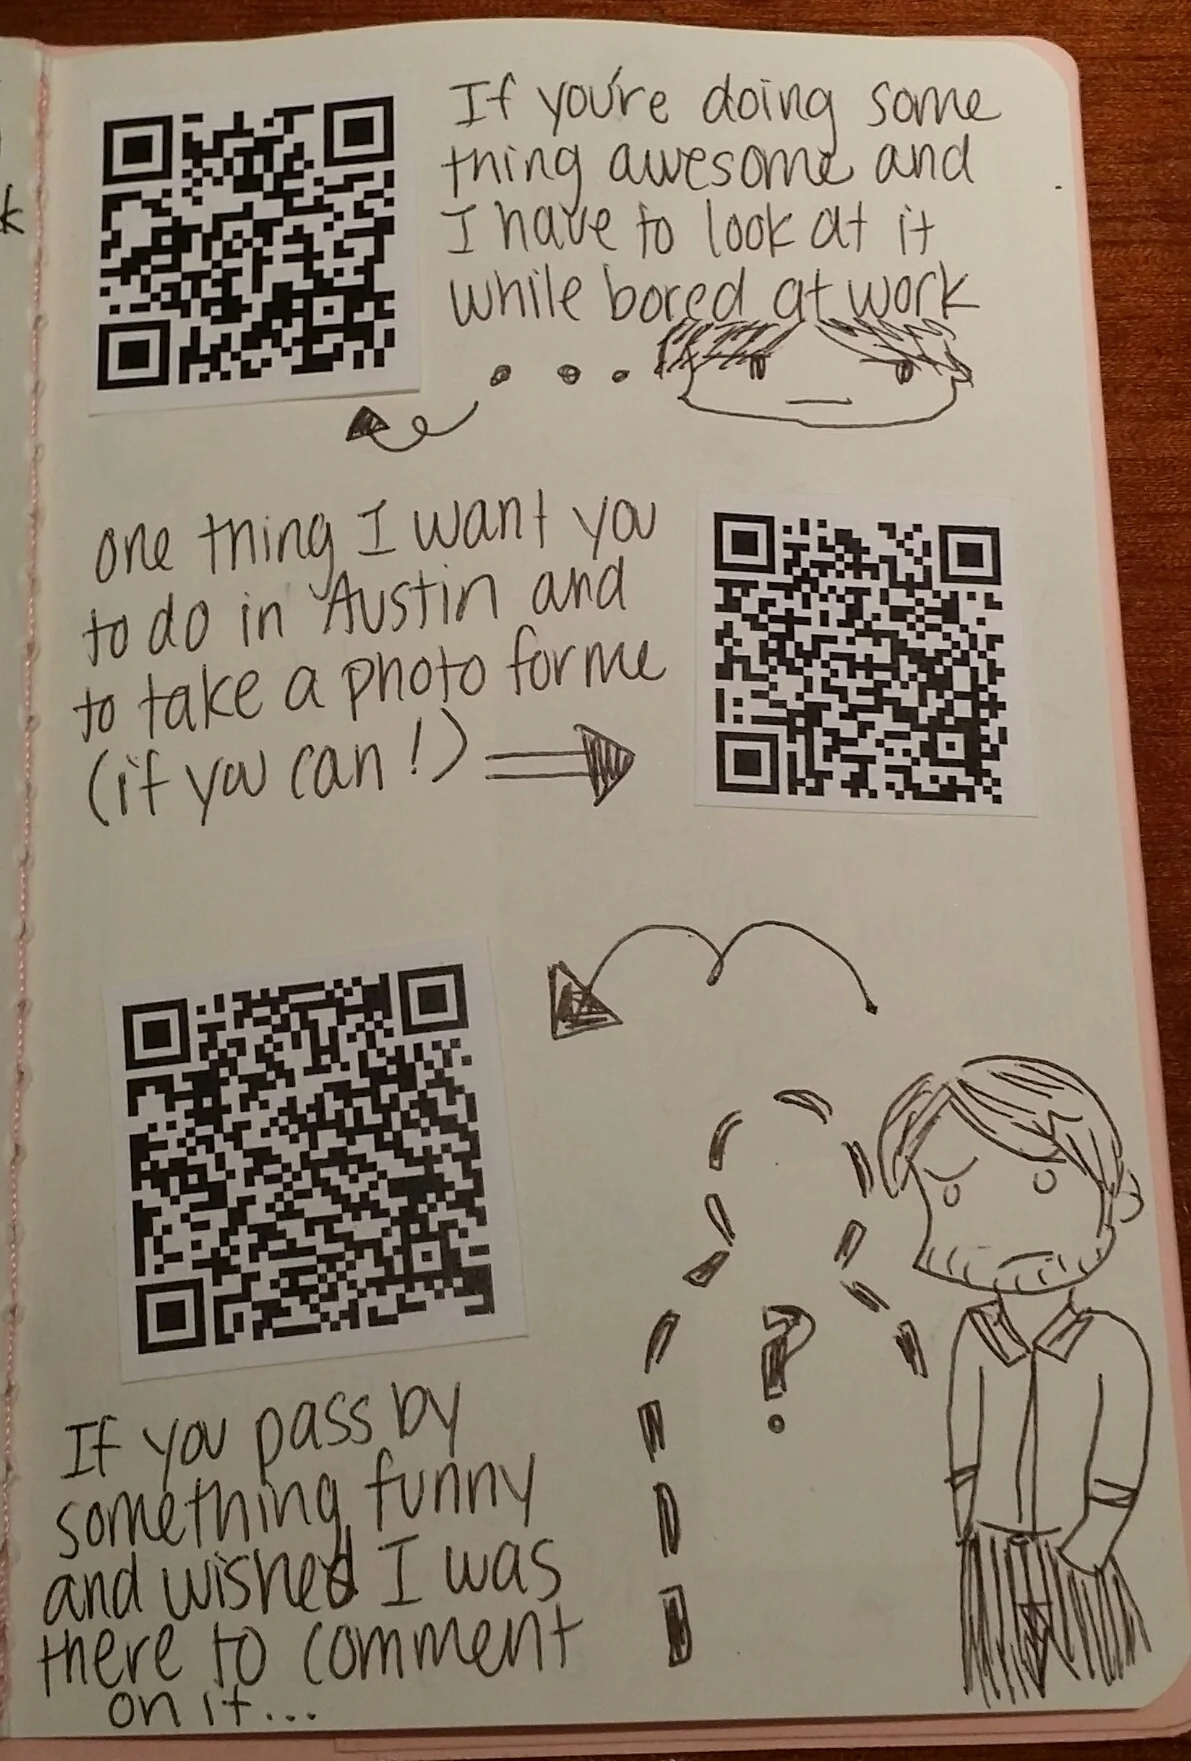 k
If you're doing some
thing awesome and
I have to look at it
while bored at work
...
one thing I want you
to do in Austin and
to take a photo for me
(if you can!)
?
If you pass by
something funny
and wished I was
there to comment
on it...